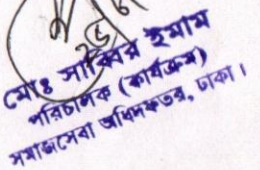 মোঃ সাব্বির ইমাম
পরিচালক (কার্যক্রম)
সমাজসেবা অধিদফতর, ঢাকা।